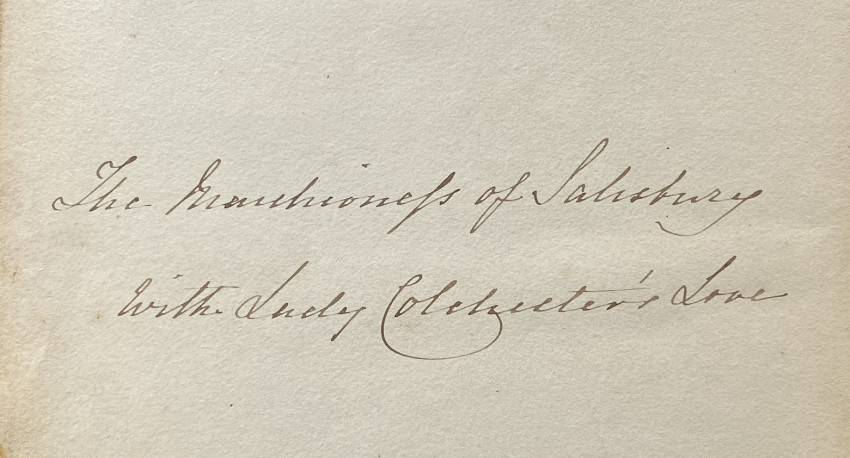 The Marchioneſs of Salisbury
With Lady Colchester's Love